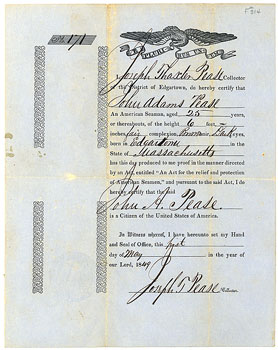 F804
No. 171
E PLURIBUS UNUM
I, Joseph Thaxter Pease Collector
of the District of Edgartown, do hereby certify that
John Adams Pease
An American Seaman, aged 25 years,
or thereabouts, of the height 6 feet,
inches, fair complexion, Brown Hair eyes,
born in Edgartown in the
State of Massachusetts
has this day produced to me proof in the manner directed
by an Act, entitled "An Act for the relief and protection
of American Seamen," and pursuant to the said Act, I do
hereby certify that the said
John A. Pease
is a Citizen of the United States of America.
In Witness whereof, I have hereunto set my Hand
and Seal of Office, this first
day of May in the year of
our Lord, 1849
Joseph T Pease Collector.